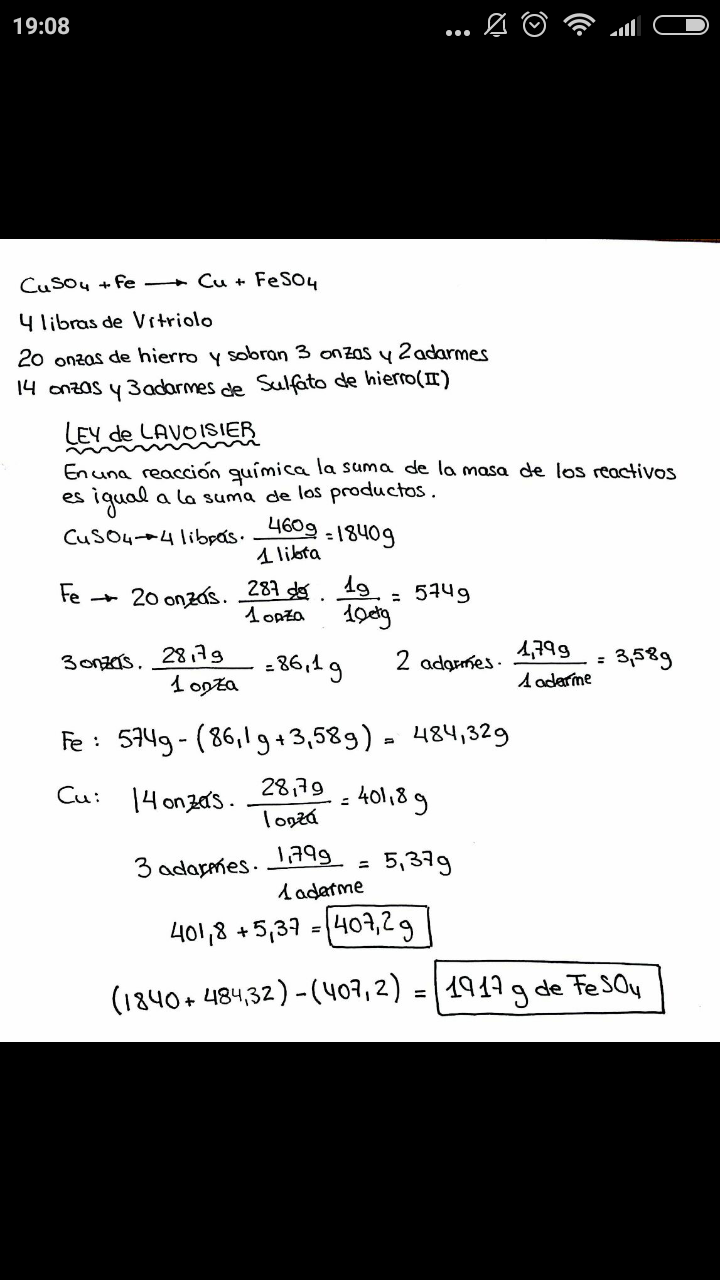 19:08
CuSO4 + Fe → Cu + FeSO4
4 libras de Vitriolo
20 onzas de hierro y sobran 3 onzas y 2 adarmes
14 onzas y 3 adarmes de Sulfato de hierro (II)
LEY de LAVOISIER
En una reacción química la suma de la masa de los reactivos
es igual a la suma de los productos.
CuSO4 → 4 libras · 460g / 1 libra = 1840g
Fe → 20 onzas · 287 dg / 1 onza · 1g / 10dg = 574g
3 onzas · 28,7g / 1 onza = 86,1g 2 adarmes · 1,79g / 1 adarme = 3,58g
Fe: 574g - (86,1g + 3,58g) = 484,32g
Cu: 14 onzas · 28,7g / 1 onza = 401,8g
3 adarmes · 1,79g / 1 adarme = 5,37g
401,8 + 5,37 = 407,2g
(1840 + 484,32) - (407,2) = 1917g de FeSO4